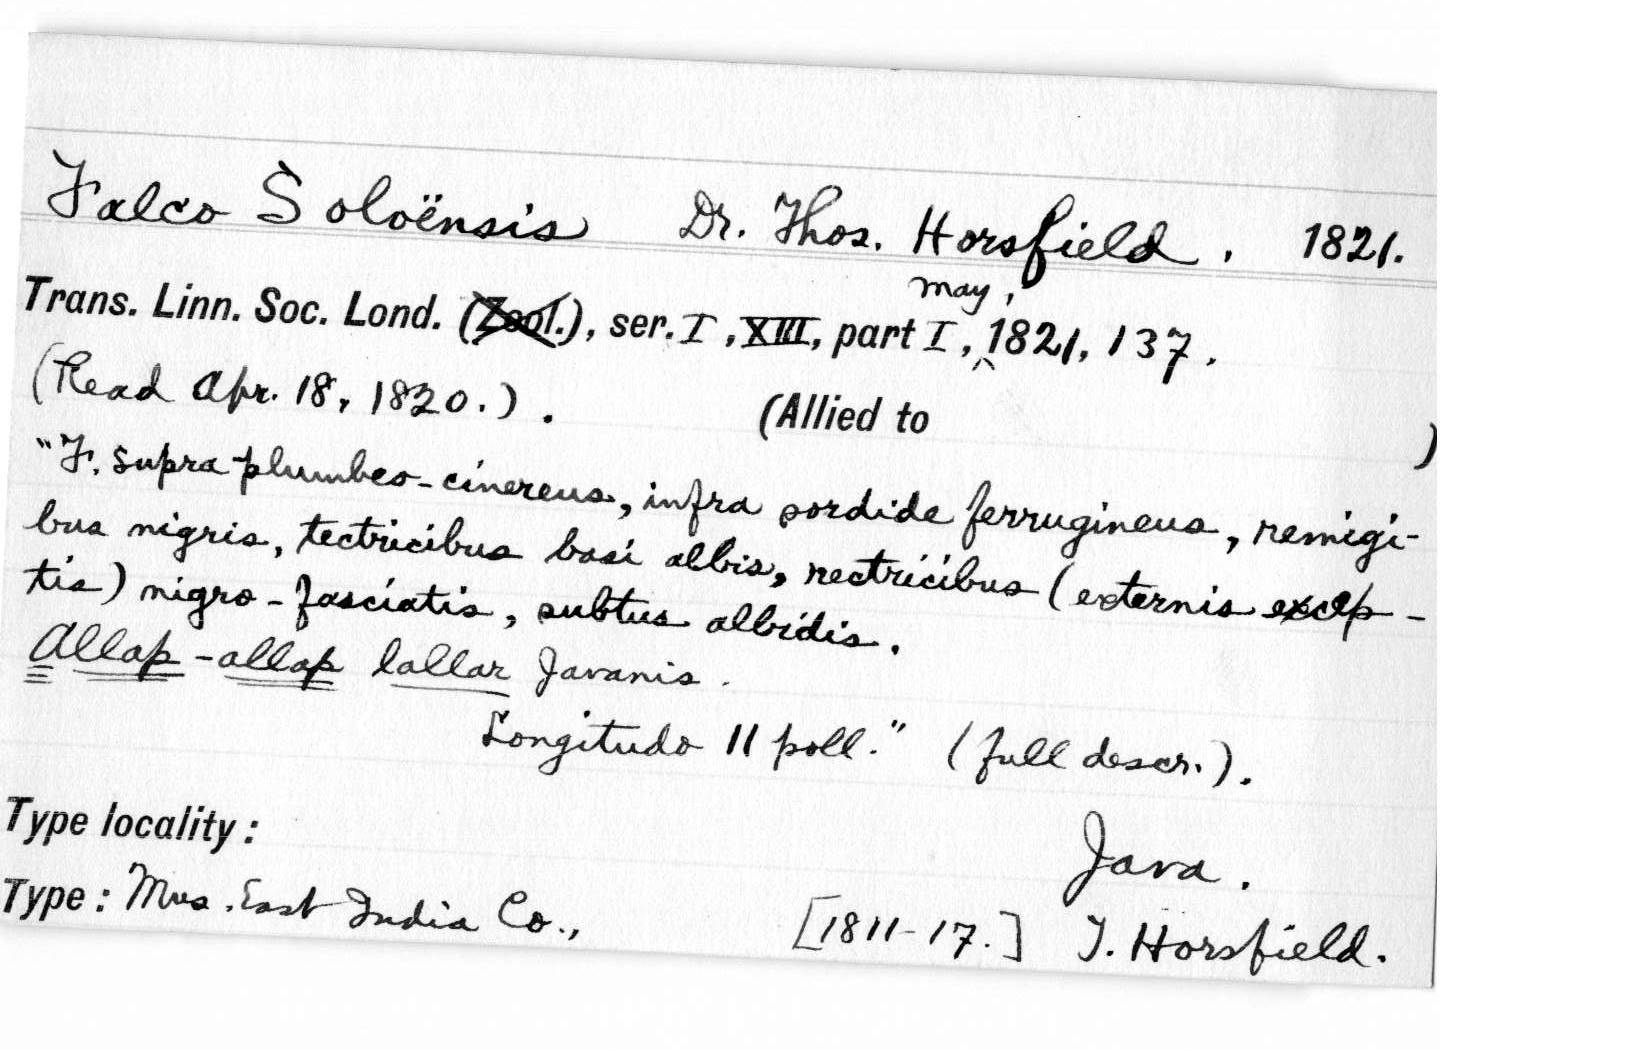 Falco Soloënsis Dr. Thos. Horsfield. 1821.
Trans. Linn. Soc. Lond. (Zool.), ser. I, XIII, part I, May, 1821, 137.
(Read Apr. 18, 1820.). (Allied to )
"F. supra plumbeo-cinereus, infra sordide ferrugineus, remigi-
bus nigris, tectricibus basi albis, rectricibus (externis excep-
tis) nigro-fasciatis, subtus albidis.
Allap-allap lallar Javanis.
Longitudo 11 poll." (full descr.).
Type locality: Java.
Type: Mus. East India Co., [1811-17.] T. Horsfield.